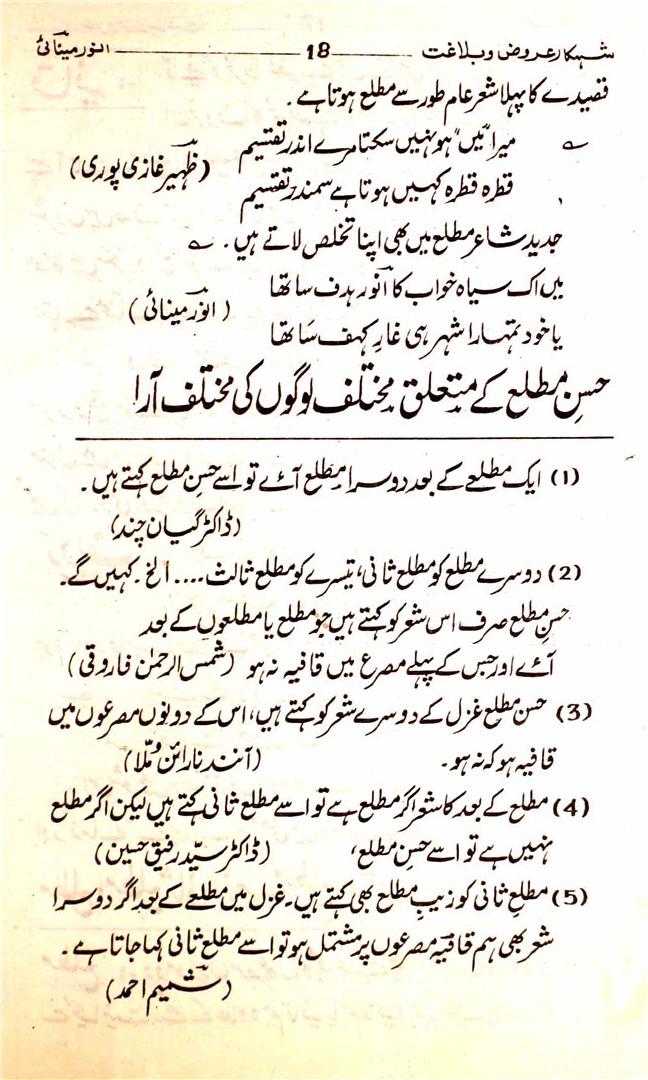 شہکار عروض و بلاغت 18 انور مینائی
قصیدے کا پہلا شعر عام طور سے مطلع ہوتا ہے۔
؎ میرا "میں" ہو نہیں سکتا مرے اندر تقسیم
قطرہ قطرہ کہیں ہوتا ہے سمندر تقسیم (ظہیر غازی پوری)
جدید شاعر مطلع میں بھی اپنا تخلص لاتے ہیں۔ ؎
میں اک سیاہ خواب کا انور ہدف سا تھا
یا خود تمہارا شہر ہی غارِ کہف سا تھا (انور مینائی)
حسنِ مطلع کے متعلق مختلف لوگوں کی مختلف آرا
(1) ایک مطلعے کے بعد دوسرا مطلع آئے تو اسے حسنِ مطلع کہتے ہیں۔
(ڈاکٹر گیان چند)
(2) دوسرے مطلع کو مطلع ثانی، تیسرے کو مطلع ثالث .... الخ۔ کہیں گے۔
حسنِ مطلع صرف اس شعر کو کہتے ہیں جو مطلع یا مطلعوں کے بعد
آئے اور جس کے پہلے مصرع میں قافیہ نہ ہو (شمس الرحمٰن فاروقی)
(3) حسن مطلع غزل کے دوسرے شعر کو کہتے ہیں، اس کے دونوں مصرعوں میں
قافیہ ہو کہ نہ ہو۔ (آنند نارائن ملا)
(4) مطلع کے بعد کا شعر اگر مطلع ہے تو اسے مطلع ثانی کہتے ہیں لیکن اگر مطلع
نہیں ہے تو اسے حسنِ مطلع، (ڈاکٹر سیّد رفیق حسین)
(5) مطلعِ ثانی کو زیبِ مطلع بھی کہتے ہیں۔ غزل میں مطلعے کے بعد اگر دوسرا
شعر بھی ہم قافیہ مصرعوں پر مشتمل ہو تو اسے مطلع ثانی کہا جاتا ہے۔
(شمیم احمد)